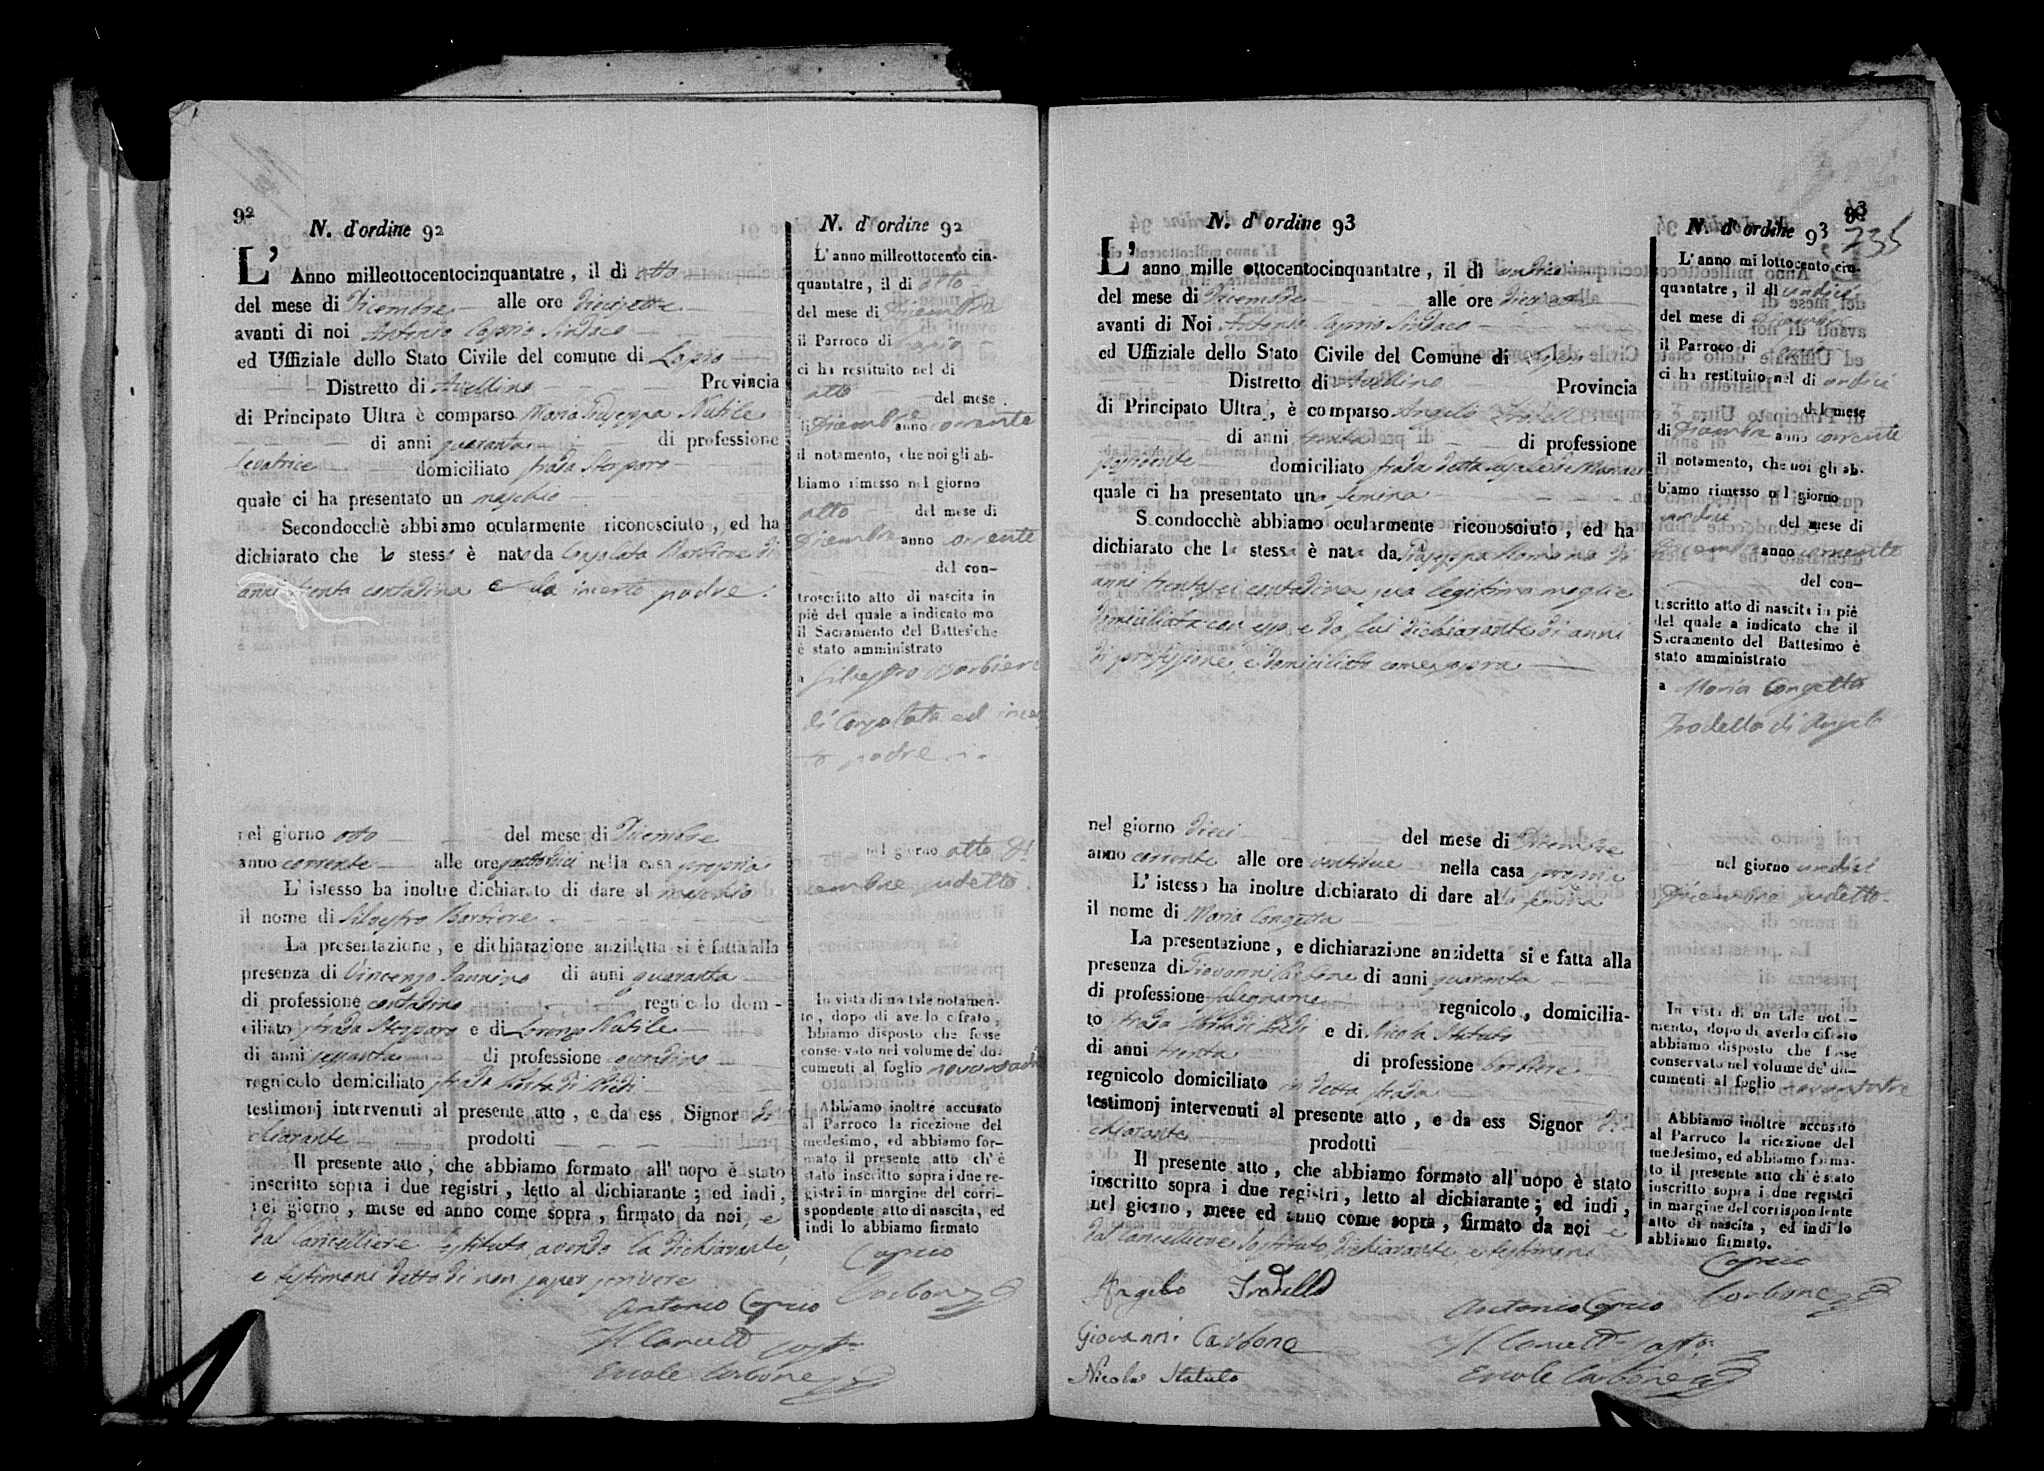 92
N. d'ordine 92
L' Anno milleottocentocinquantatre, il dì otto
del mese di Dicembre alle ore diecisette
avanti di noi Antonio Caprio Sindaco
ed Uffiziale dello Stato Civile del comune di Lapio
Distretto di Avellino Provincia
di Principato Ultra è comparso Maria Giuseppa Nutile
di anni quaranta di professione
levatrice domiciliato strada Sterparo
quale ci ha presentato un maschio
Secondocchè abbiamo ocularmente riconosciuto, ed ha
dichiarato che lo stesso è nato da Consolata Barbiere di
anni trenta contadina e da incerto padre.
nel giorno otto del mese di Dicembre
anno corrente alle ore nella casa propria
L' istesso ha inoltre dichiarato di dare al maschio
il nome di Silvestro Barbiere
La presentazione, e dichiarazione anzidetta si è fatta alla
presenza di Vincenzo Iannino di anni quaranta
di professione contadino regnicolo domi-
ciliato strada Sterparo e di Lorenzo Nutile
di anni sessanta di professione
regnicolo domiciliato strada Costa di Piedi
testimonj intervenuti al presente atto, e da ess Signor di-
chiarante prodotti
Il presente atto, che abbiamo formato all' uopo è stato
inscritto sopra i due registri, letto al dichiarante; ed indi,
nel giorno, mese ed anno come sopra, firmato da noi, e
dal Cancelliere sostituto, avendo la dichiarante,
e testimoni detto di non saper scrivere
Antonio Caprio
Il Cancell sosto
Ercole Carbone
N. d'ordine 92
L' anno milleottocento cin-
quantatre, il di otto
del mese di Dicembre
il Parroco di Lapio
ci ha restituito nel di
otto del mese
di Dicembre anno corrente
il notamento, che noi gli ab-
biamo rimesso nel giorno
otto del mese di
Dicembre anno corrente
del con-
troscritto atto di nascita in
piè del quale a indicato mo
il Sacramento del Battes che
è stato amministrato
a Silvestro Barbiere
di Consolata ed incer
to padre
nel giorno otto Di
cembre sudetto
In vista di un tale notamen-
to, dopo di averlo cifrato,
abbiamo disposto che fosse
conservato nel volume de' do-
cumenti al foglio
Abbiamo inoltre accusato
al Parroco la ricezione del
medesimo, ed abbiamo for-
mato il presente atto ch' è
stato inscritto sopra i due re-
gistri in margine del corri-
spondente atto di nascita, ed
indi lo abbiamo firmato
Caprio
Carbone
N. d' ordine 93
L' anno mille ottocentocinquantatre, il di undici
del mese di Dicembre alle ore
avanti di Noi Antonio Caprio Sindaco
ed Uffiziale dello Stato Civile del Comune di Lapio
Distretto di Avellino Provincia
di Principato Ultra, è comparso Angelo Trodella
di anni di professione
domiciliato strada detta
quale ci ha presentato una femina
Secondocchè abbiamo ocularmente riconosciuto, ed ha
dichiarato che la stessa è nata da Giuseppa Romano di
anni trentasei contadina sua legittima moglie
domiciliata con esso e da lui dichiarante di anni
di professione e domiciliato come sopra
nel giorno dieci del mese di Dicembre
anno corrente alle ore ventidue nella casa propria
L' istesso ha inoltre dichiarato di dare alla femina
il nome di Maria Congetta
La presentazione, e dichiarazione anzidetta si e fatta alla
presenza di Giovanni Carbone di anni quaranta
di professione falegname regnicolo, domicilia-
to strada Costa di Piedi e di Nicola Statuto
di anni trenta di professione barbiere
regnicolo domiciliato in detta strada
testimonj intervenuti al presente atto, e da ess Signor di-
chiarante prodotti
Il presente atto, che abbiamo formato all' uopo è stato
inscritto sopra i due registri, letto al dichiarante; ed indi,
nel giorno, mese ed anno come sopra, firmato da noi e
dal Cancelliere sostituto, dichiarante, e testimoni
Angelo Trodella
Giovanni Carbone
Nicola Statuto
Antonio Caprio
Il Cancell sosto
Ercole Carbone
93
235
N. d' ordine 93
L' anno millottocento cin-
quantatre, il di undici
del mese di Dicembre
il Parroco di Lapio
ci ha restituito nel di undici
del mese
di Dicembre anno corrente
il notamento, che noi gli ab-
biamo rimesso nel giorno
undici del mese di
Dicembre anno corrente
del con-
troscritto atto di nascita in piè
del quale a indicato che il
Sacramento del Battesimo è
stato amministrato
a Maria Congetta
Trodella di Angelo
nel giorno undici
Dicembre sudetto
In vista di un tale nota-
mento, dopo di averlo cifrato
abbiamo disposto che fosse
conservato nel volume de' do-
cumenti al foglio novantatre
Abbiamo inoltre accusato
al Parroco la ricezione del
medesimo, ed abbiamo forma-
to il presente atto ch' è stato
inscritto sopra i due registri
in margine del corrispondente
atto di nascita, ed indi lo
abbiamo firmato.
Caprio
Carbone